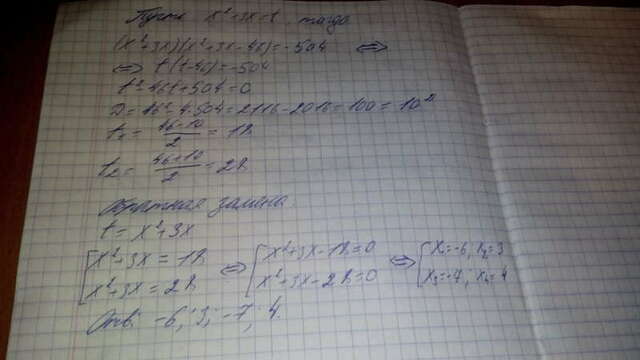 Пусть x²+3x=t, тогда
(x²+3x)(x²+3x-46)=-504 ⇔
⇔ t(t-46)=-504
t²-46t+504=0
D=46²-4·504=2116-2016=100=10²
t₁= (46-10)/2 = 18
t₂= (46+10)/2 = 28
Обратная замена:
t=x²+3x
[x²+3x=18 ⇔ [x²+3x-18=0 ⇔ [x₁=-6; x₂=3
[x²+3x=28 [x²+3x-28=0 [x₃=-7; x₄=4
Отв: -6; 3; -7; 4.